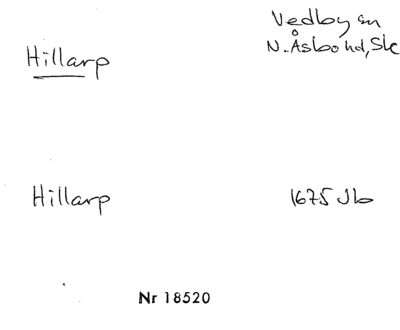 Vedby sn
Hillarp N. Åsbo hd, Sk
Hillarp 1675 Jb
Nr 18520